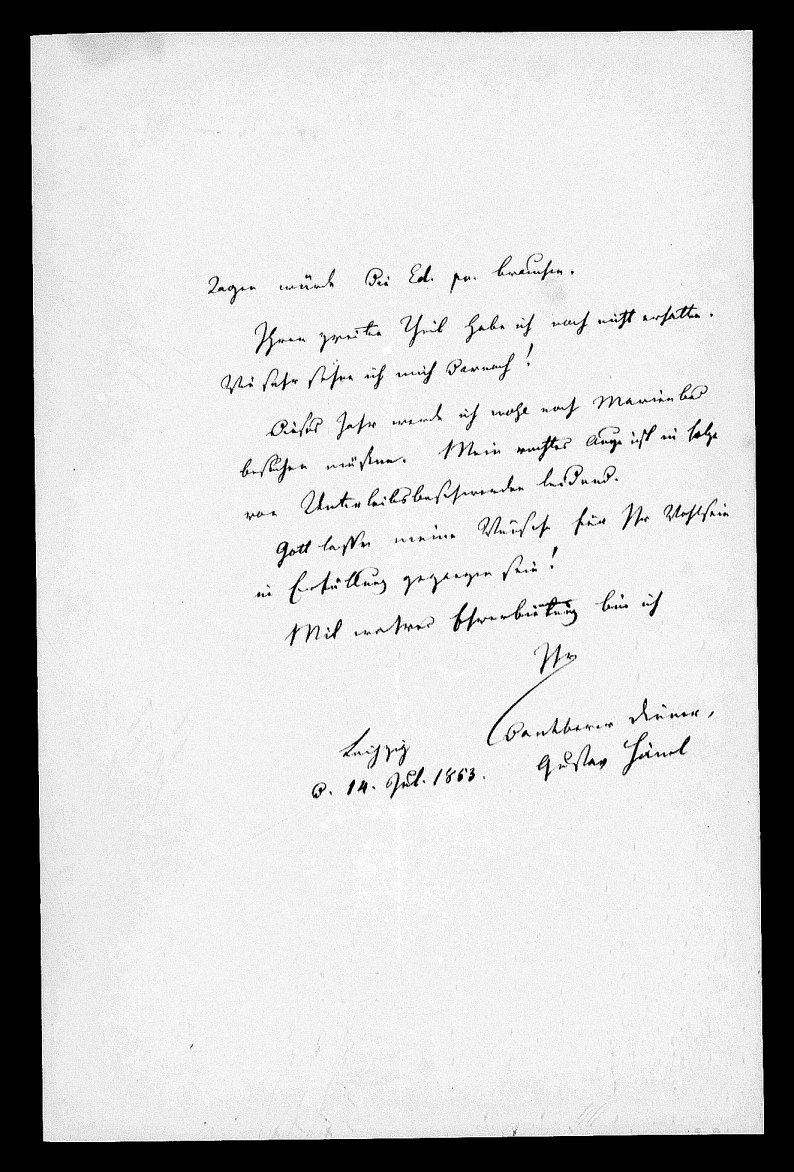 Tagen würde die Ed. pr. brauchen.
Ihren zweiten Theil habe ich noch nicht erhalten.
Wie sehr sehne ich mich darnach!
Dieses Jahr werde ich wohl nach Marienbad
besuchen müssen. Mein rechtes Auge ist in Folge
von Unterleibsbeschwerden leidend.
Gott lasse meine Wünsche für Ihr Wohlsein
in Erfüllung gegangen sein!
Mit wahrer Ehrerbietung bin ich
Ihr
dankbarer Diener,
Leipzig
Gustav Hänel
d. 14. Jul. 1863.